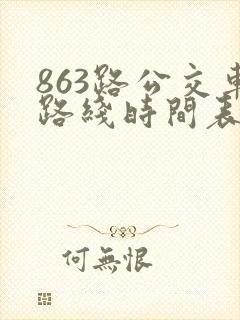 863路公交車
路綫時間表
何無恨